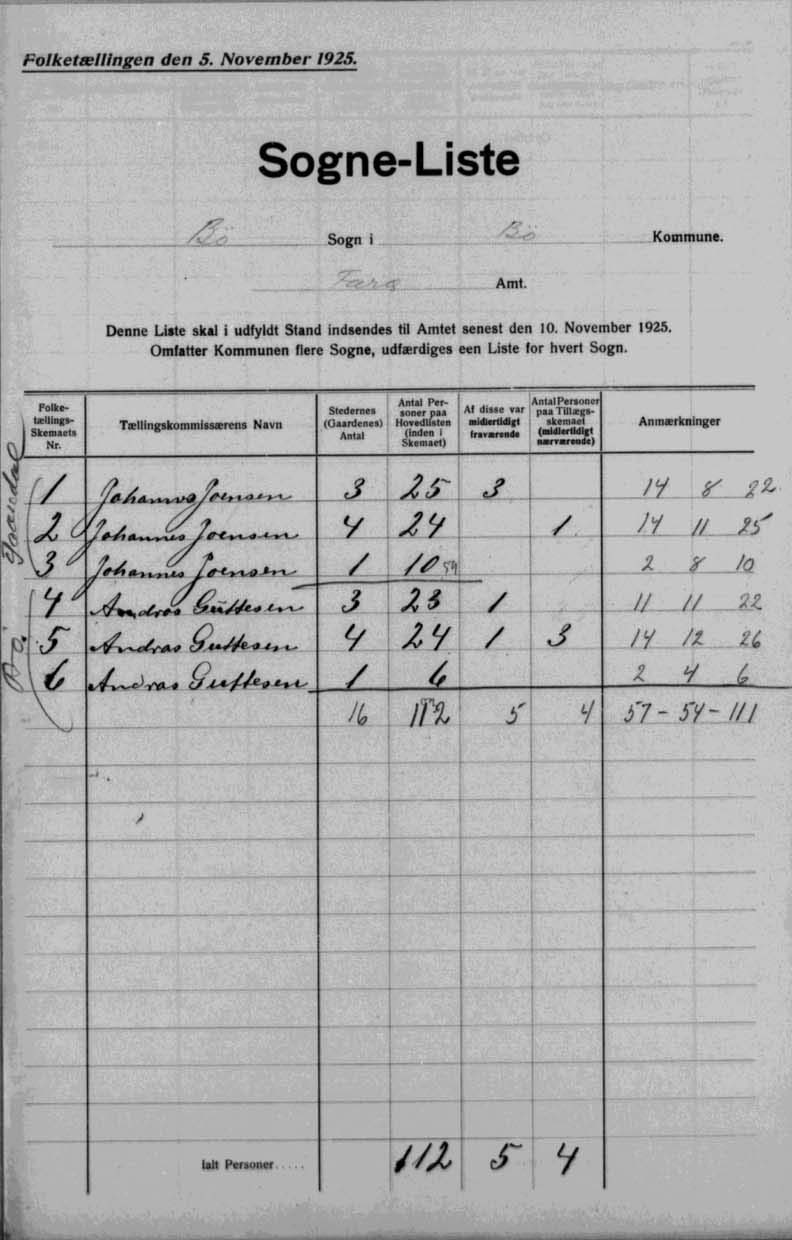 Folketællingen den 5. November 1925.
Sogne-Liste
Bö Sogn i Bö Kommune.
Amt.
Denne Liste skal i udfyldt Stand indsendes til Amtet senest den 10. November 1925.
Omfatter Kommunen flere Sogne, udfærdiges een Liste for hvert Sogn.
Folke-
tællings-
Skemaets
Nr.
Tællingskommissærens Navn
Stedernes
(Gaardenes)
Antal
Antal Per-
soner paa
Hovedlisten
(inden i
Skemaet)
Af disse var
midlertidigt
fraværende
Antal Personer
paa Tillægs-
skemaet
(midlertidigt
nærværende)
Anmærkninger
1 Johannes Joensen 3 25 3 14 8 22
2 Johannes Joensen 4 24 1 14 11 25
3 Johannes Joensen 1 10 59 2 8 10
4 Andras Guttesen 3 23 1 11 11 22
5 Andras Guttesen 4 24 1 3 14 12 26
6 Andras Guttesen 1 6 2 4 6
16 112 5 4 57 - 54 - 111
Ialt Personer..... 112 5 4